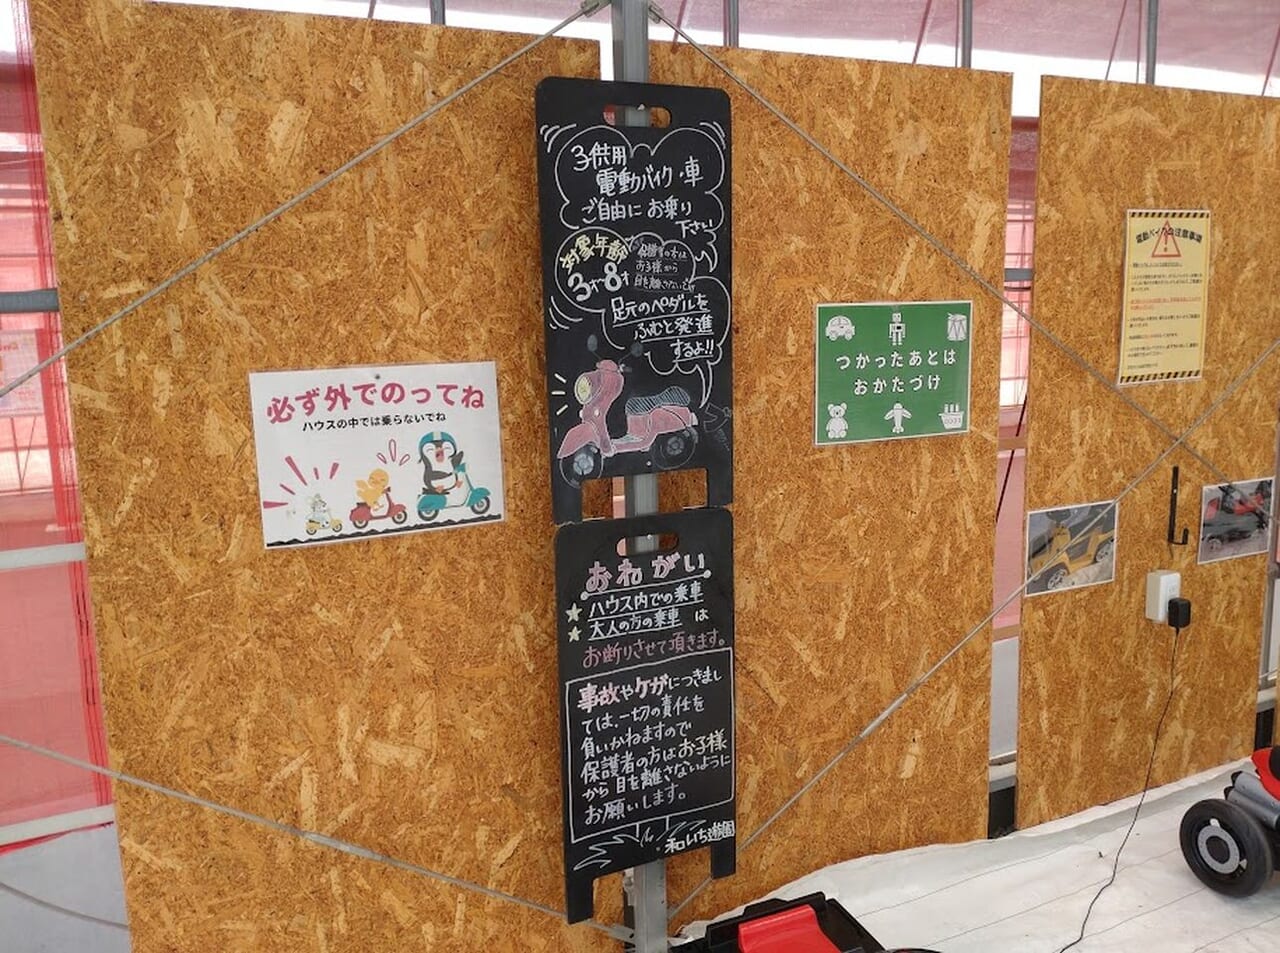 必ず外でのってね
ハウスの中では乗らないでね
子供用
電動バイク・車
ご自由にお乗り
下さい
対象年齢
3才〜8才
保護者の方は
お子様から
目を離さないでね
足元のペダルを
ふむと発進
するよ!!
おねがい
★ハウス内での乗車
★大人の方の乗車 は
お断りさせて頂きます。
事故やケガにつきまし
ては、一切の責任を
負いかねますので
保護者の方はお子様
から目を離さないように
お願いします。
和いち遊園
つかったあとは
おかたづけ
電動バイクの注意事項